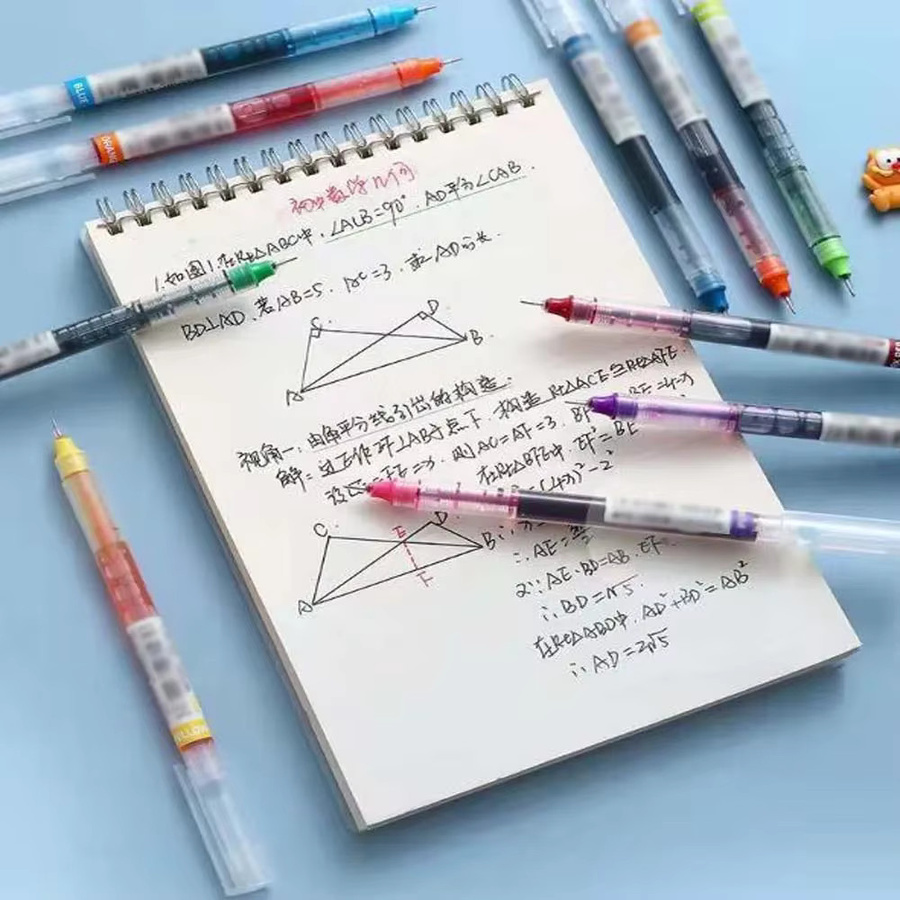 BLUE
ORANG
初中数学几何
1.如图1,在Rt△ABC中,∠ACB=90°,AD平分∠CAB.
BD⊥AD,若AB=5, AC=3,求AD的长.
C
D
B
A
视角一:由角平分线引出的构造.
解:过E作EF⊥AB于点F,构造Rt△ACE≌Rt△AFE.
=FE=x,则AC=AF=3.
=4-x
在Rt△BFE中,EF²=BE
(4-x)²-2²
C
E
D
B
F
A
∴AE=
2∵AE·BD=AB·EF
∴BD=√5.
在Rt△ABD中,AD²+BD²=AB²
∴AD=2√5
YELLOW